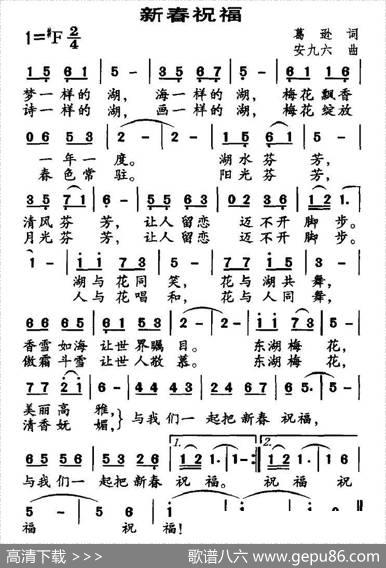 新春祝福
1=#F 2/4
葛 逊 词
安九六 曲
1 5 6 1 | 5 - | 3 5 6 7 | 5 - | 6 1 1 6 |
梦一样的 湖， 海一样的 湖， 梅花飘香
诗一样的 湖， 画一样的 湖， 梅花绽放
0 6 5 3 | 2 - | 2 - | 1 5 6 1 | 5 - |
一年一度。 湖水芬 芳，
春色常驻。 阳光芬 芳，
3 5 7 1 | 6 - | 5 5 6 3 | 0 2 3 6 | 1 2 1. |
清风芬 芳， 让人留恋 迈不开 脚步。
月光芬 芳， 让人留恋 迈不开 脚步。
1 - | i i 7 3 | 5 - | 7 7 i 5 | 3 - |
湖与花同 笑， 花与湖共 舞，
人与花唱 和， 花与人同 舞，
6 6 6 5 | 6 6 6 5 | 6 1 5 3 | 2 - | 2 - | i i 7 3 |
香雪如海 让世界瞩 目。 东湖梅 花，
傲霜斗雪 让世人敬 慕。 东湖梅 花，
7 7 2 i | 6 - | 4 6 4 3 | 2 4 4 6 | 6 7 | 5 - | 5 - |
美丽高 雅，
清香妩 媚，
与我们一 起把新春 祝福，
6 5 5 6 | 5 3 5 6 | 1 2 1 | 1 - :| 1 2 1 | 1 6 |
与我们一 起把新春 祝 福。 祝 福。 祝
5 - | 5 6 | i - | i - | i - | i 0 ||
福 祝 福！
高清下载 >>> 歌谱八六 www.gepu86.com